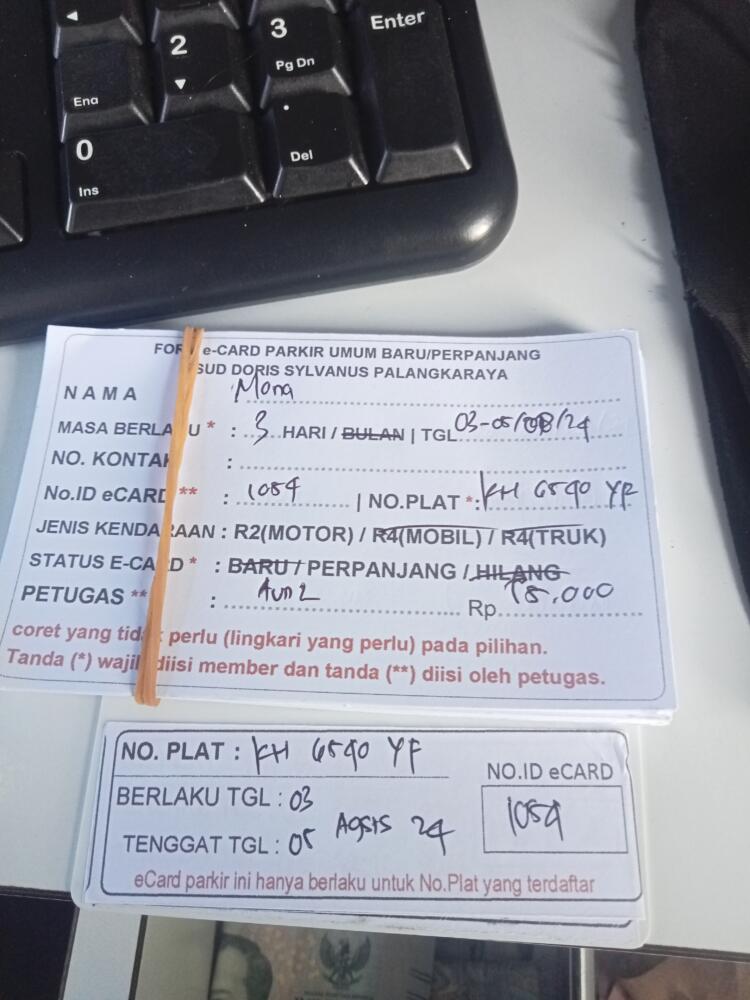 3
Enter
2
Pg Dn
End
0
.
Ins
Del
FOR e-CARD PARKIR UMUM BARU/PERPANJANG
SUD DORIS SYLVANUS PALANGKARAYA
NAMA Mona
MASA BERLA U * : 3 HARI / BULAN | TGL 03-05/08/24
NO. KONTAK :
No.ID eCARD ** : 1054 | NO.PLAT *: KH 6590 YF
JENIS KENDARAAN : R2(MOTOR) / R4(MOBIL) / R4(TRUK)
STATUS E-CA D * : BARU / PERPANJANG / HILANG
PETUGAS ** : Rp 15.000
coret yang tid k perlu (lingkari yang perlu) pada pilihan.
Tanda (*) wajib diisi member dan tanda (**) diisi oleh petugas.
NO. PLAT : KH 6590 YF
NO.ID eCARD
BERLAKU TGL : 03
1054
TENGGAT TGL : 05 Agsts 24
eCard parkir ini hanya berlaku untuk No.Plat yang terdaftar